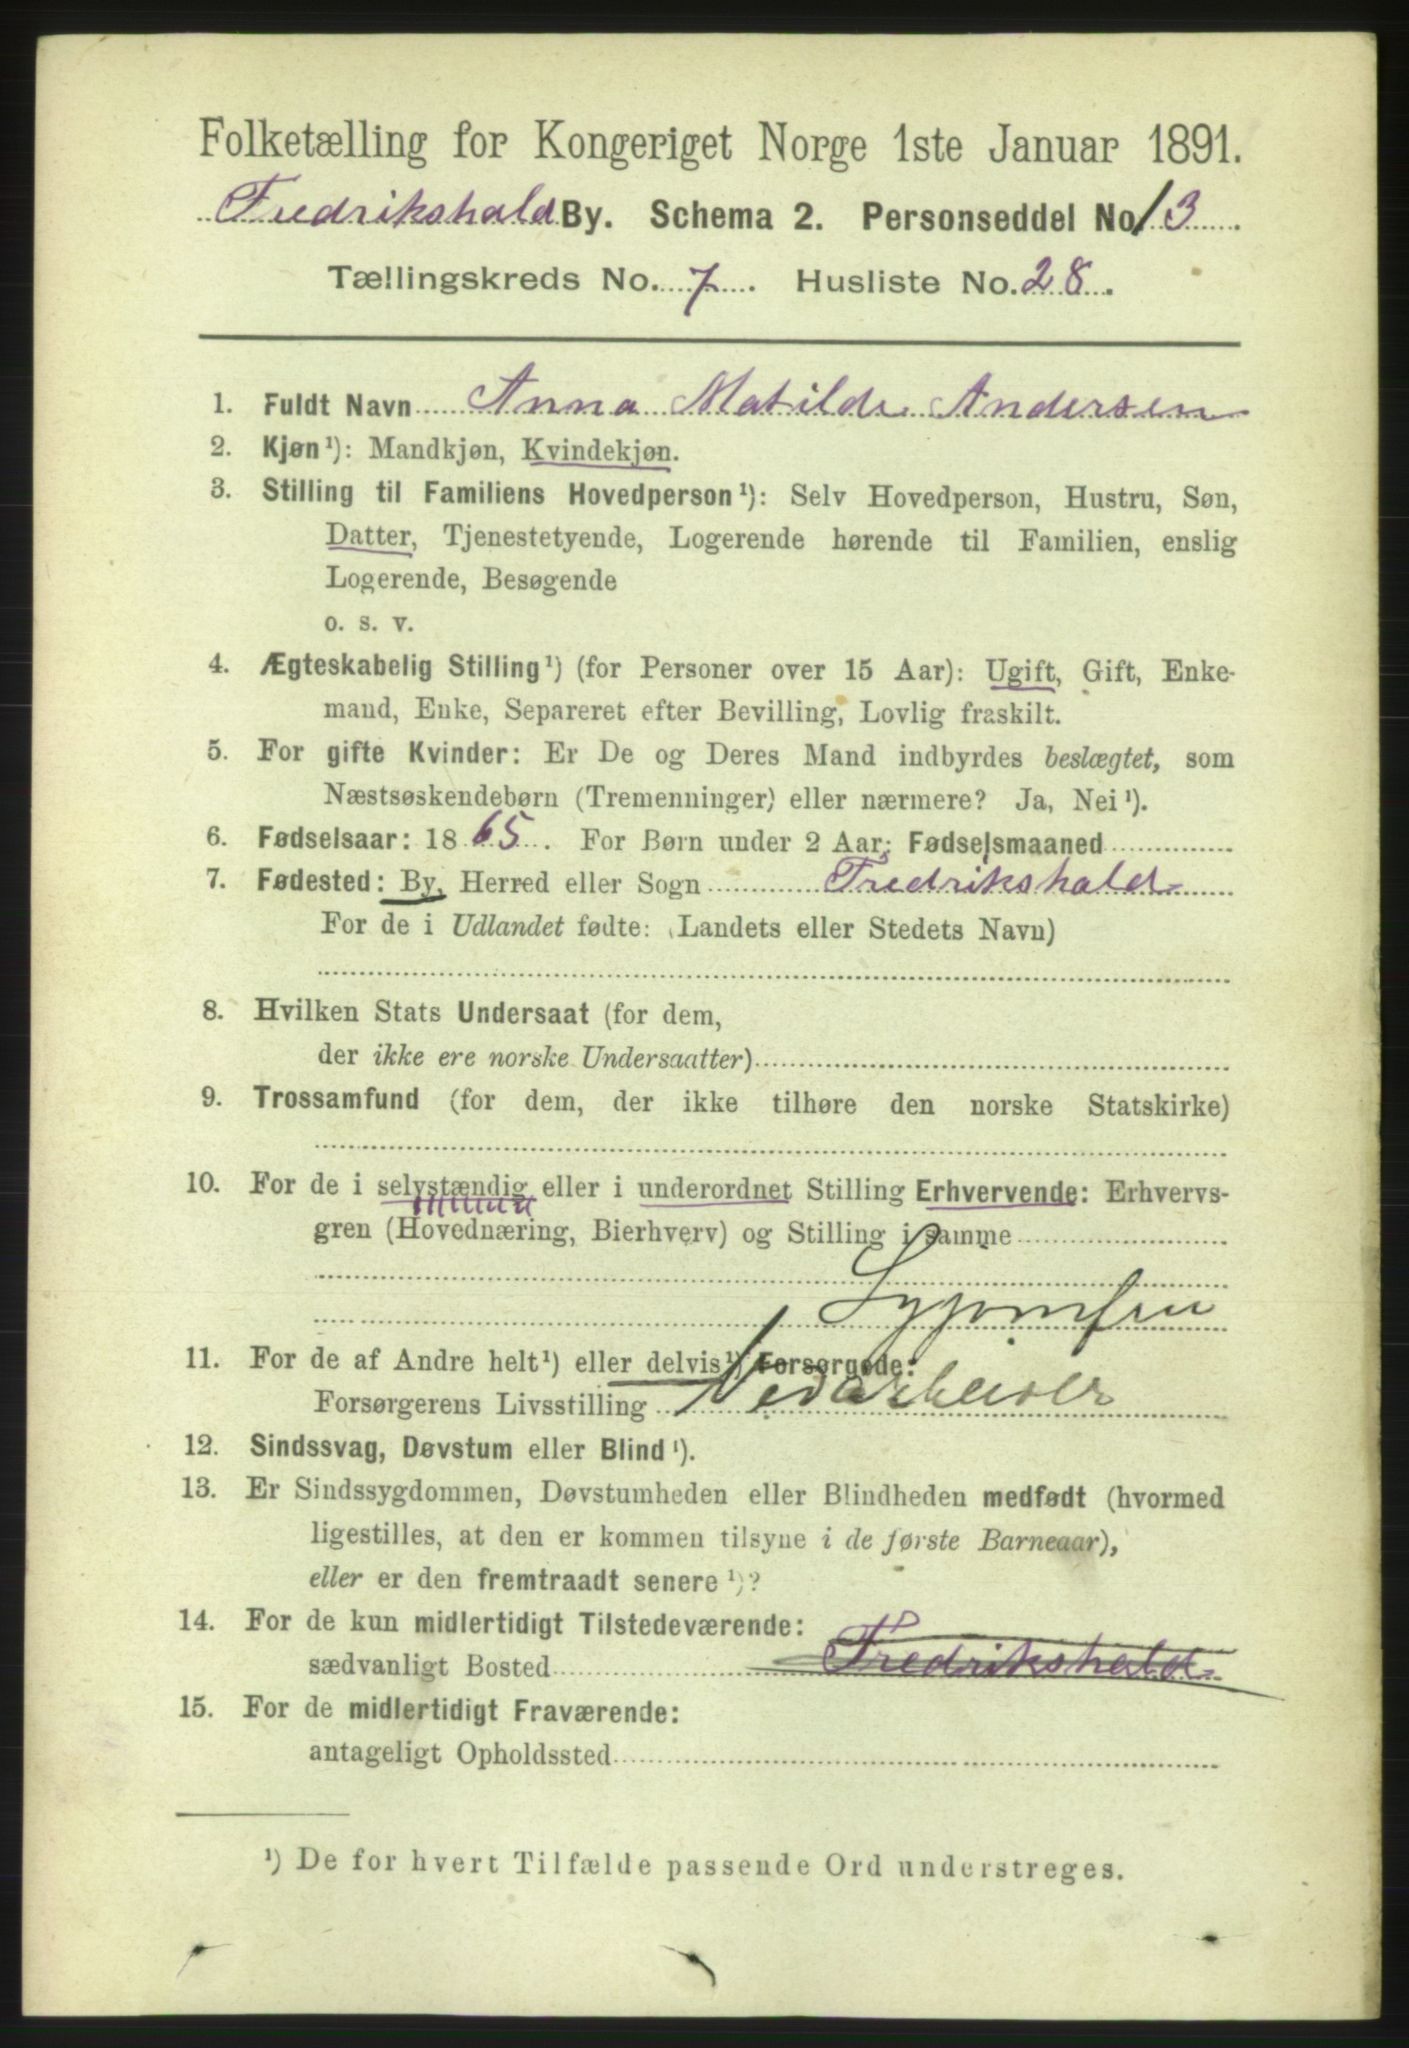 Folketælling for Kongeriget Norge 1ste Januar 1891.
Fredrikshald By. Schema 2. Personseddel No 13.
Tællingskreds No. 7. Husliste No. 28.
1. Fuldt Navn Anna Matilde Andersen
2. Kjøn¹): Mandkjøn, Kvindekjøn.
3. Stilling til Familiens Hovedperson¹): Selv Hovedperson, Hustru, Søn,
Datter, Tjenestetyende, Logerende hørende til Familien, enslig
Logerende, Besøgende
o. s. v.
4. Ægteskabelig Stilling¹) (for Personer over 15 Aar): Ugift, Gift, Enke-
mand, Enke, Separeret efter Bevilling, Lovlig fraskilt.
5. For gifte Kvinder: Er De og Deres Mand indbyrdes beslægtet, som
Næstsøskendebørn (Tremenninger) eller nærmere? Ja, Nei¹).
6. Fødselsaar: 1865. For Børn under 2 Aar: Fødselsmaaned
7. Fødested: By, Herred eller Sogn Fredrikshald
For de i Udlandet fødte: (Landets eller Stedets Navn)
8. Hvilken Stats Undersaat (for dem,
der ikke ere norske Undersaatter)
9. Trossamfund (for dem, der ikke tilhøre den norske Statskirke)
10. For de i selvstændig eller i underordnet Stilling Erhvervende: Erhvervs-
gren (Hovednæring, Bierhverv) og Stilling i samme
Syjomfru
11. For de af Andre helt¹) eller delvis¹) Forsørgede:
Forsørgerens Livsstilling Vedarbeider
12. Sindssvag, Døvstum eller Blind¹).
13. Er Sindssygdommen, Døvstumheden eller Blindheden medfødt (hvormed
ligestilles, at den er kommen tilsyne i de første Barneaar),
eller er den fremtraadt senere¹)?
14. For de kun midlertidigt Tilstedeværende:
sædvanligt Bosted Fredrikshald
15. For de midlertidigt Fraværende:
antageligt Opholdssted
¹) De for hvert Tilfælde passende Ord understreges.